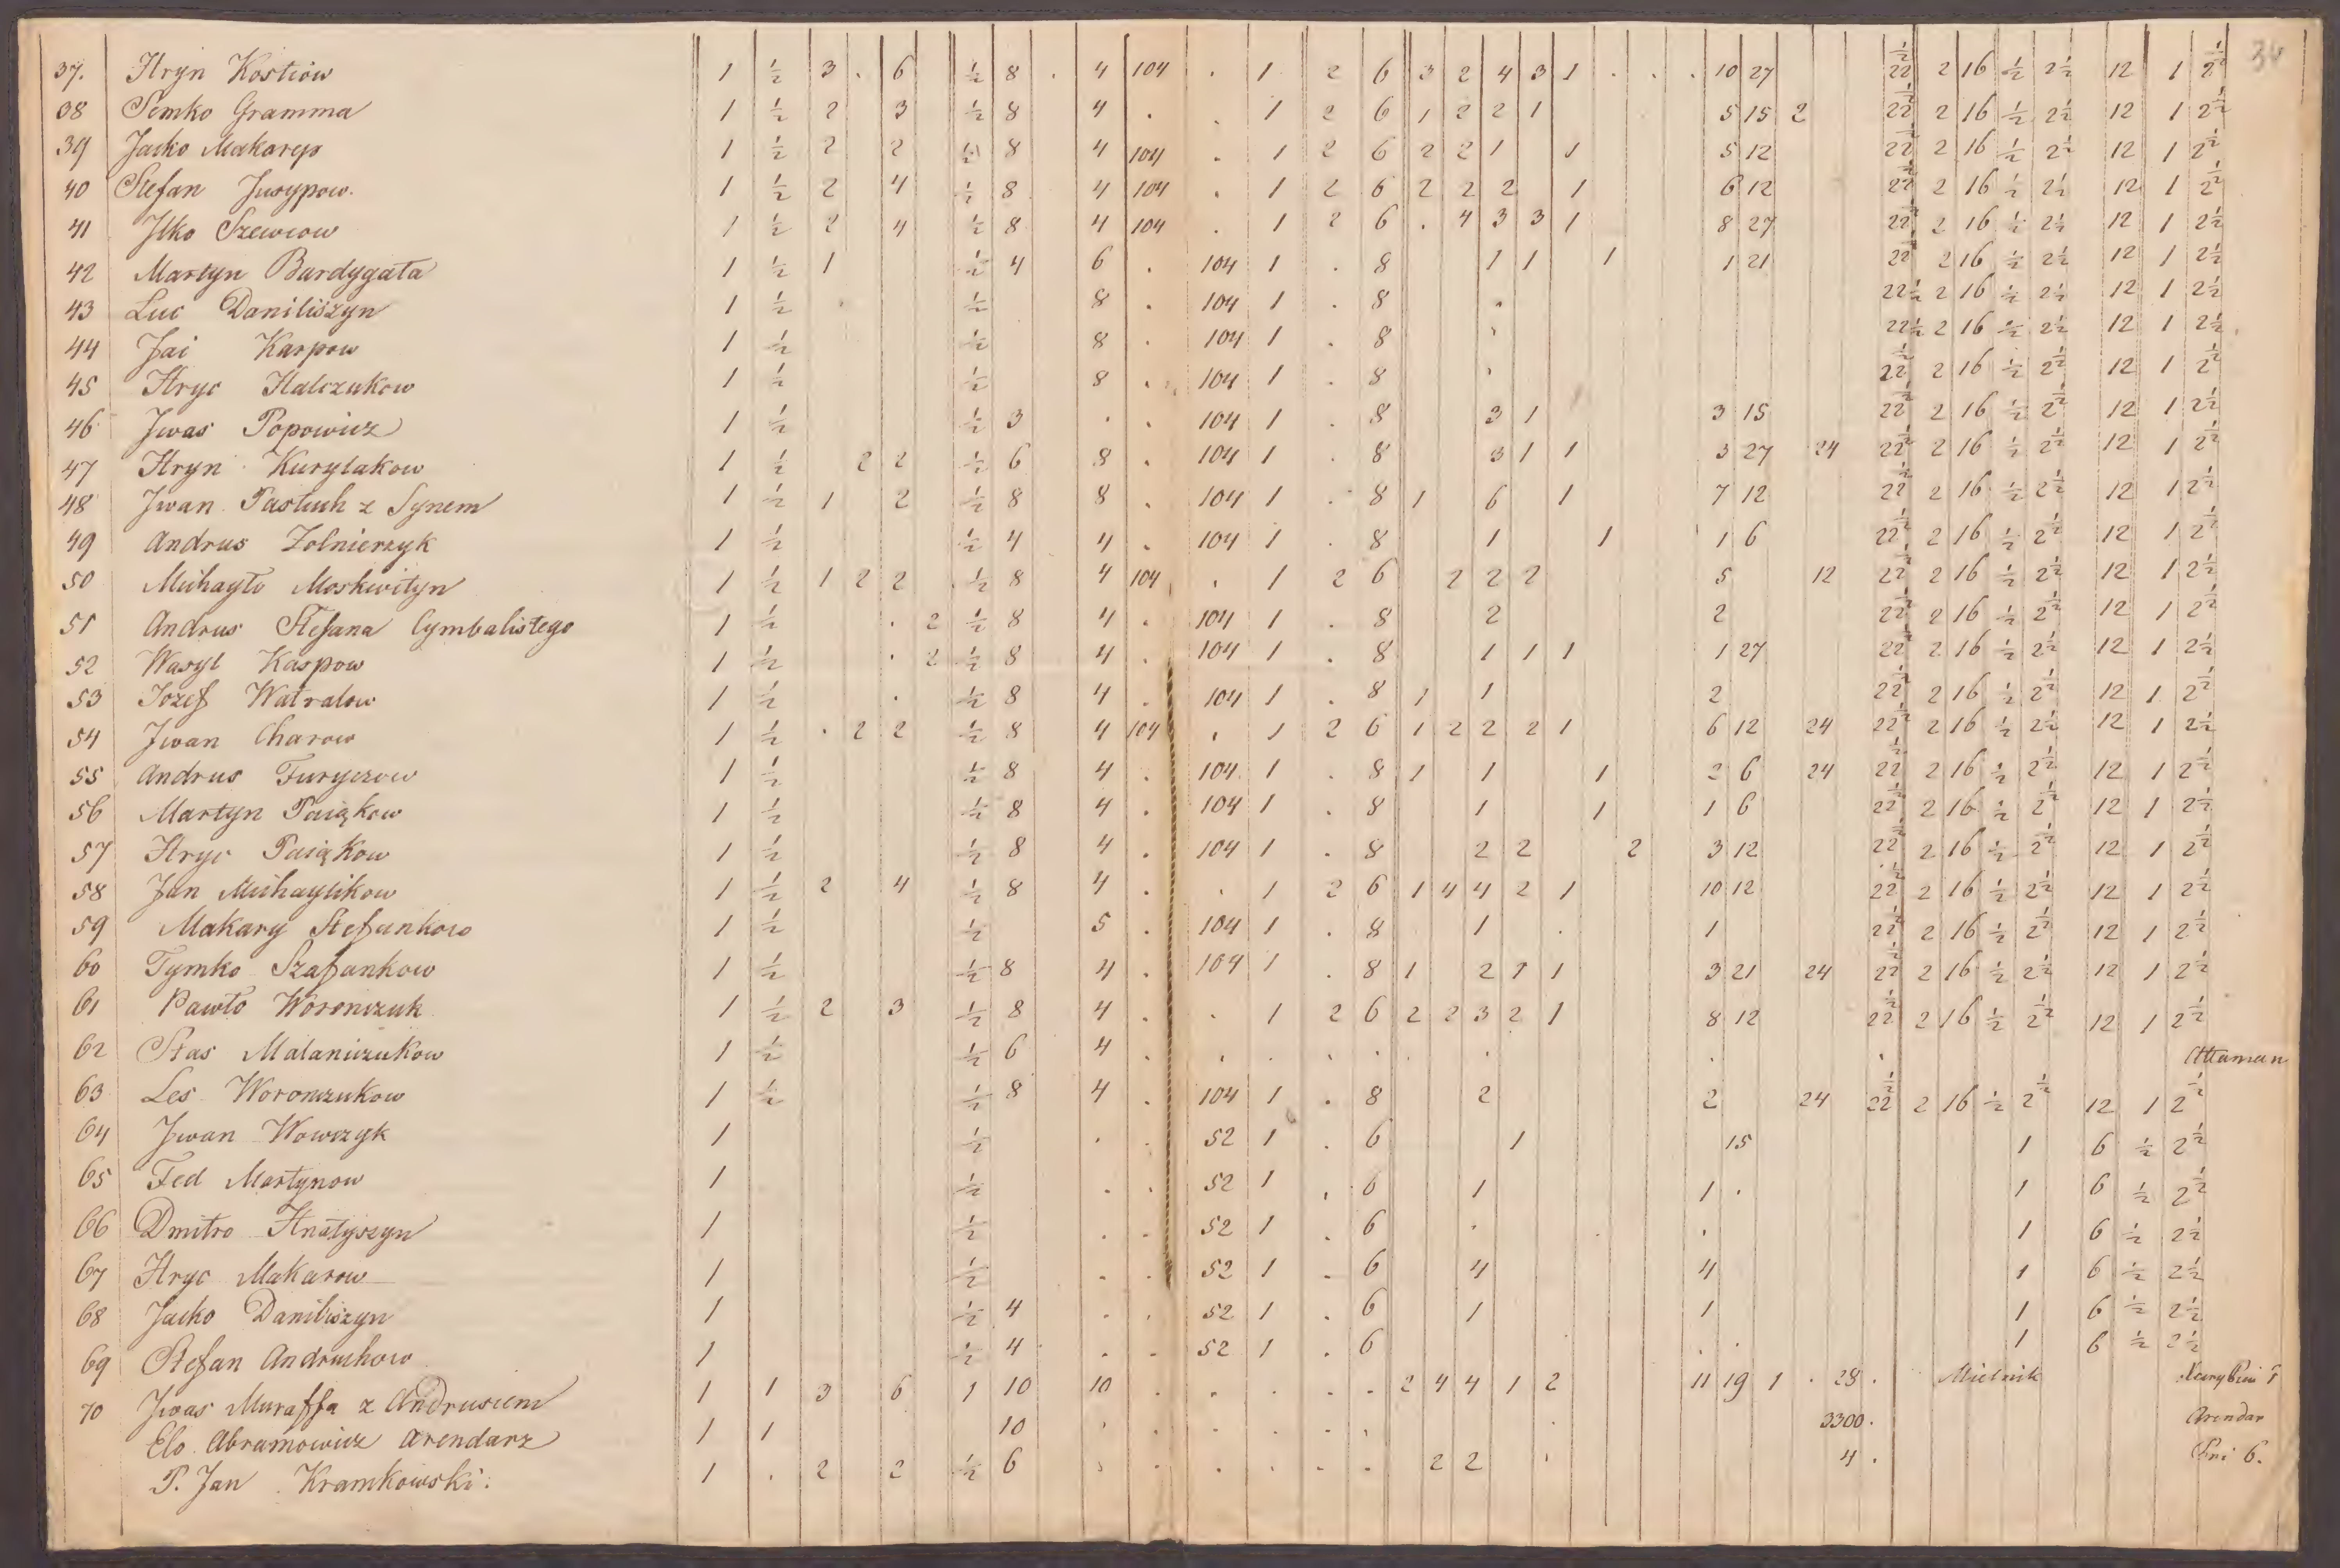 34
37. Hryn Kostiow 1 ½ 3 . 6 ½ 8 . 4 104 . 1 2 6 3 2 4 3 1 . . . 10 27 22½ 2 16 ½ 2½ 12 1 2½
38 Semko Gramma 1 ½ 2 3 ½ 8 4 . . 1 2 6 1 2 2 1 5 15 2 22½ 2 16 ½ 2½ 12 1 2½
39 Jacko 1 ½ 2 2 ½ 8 4 104 . 1 2 6 2 2 1 1 5 12 22½ 2 16 ½ 2½ 12 1 2½
40 Stefan Jusypow. 1 ½ 2 4 ½ 8 4 104 . 1 2 6 2 2 2 1 6 12 22½ 2 16 ½ 2½ 12 1 2½
41 Jlko Szewcow 1 ½ 2 4 ½ 8 4 104 . 1 2 6 . 4 3 3 1 8 27 22½ 2 16 ½ 2½ 12 1 2½
42 Martyn Bardygała 1 ½ 1 ½ 4 6 . 104 1 . 8 1 1 1 1 21 22½ 2 16 ½ 2½ 12 1 2½
43 Luc Daniliszyn 1 ½ . ½ 8 . 104 1 . 8 . 22½ 2 16 ½ 2½ 12 1 2½
44 Jai Karpow 1 ½ ½ 8 . 104 1 . 8 . 22½ 2 16 ½ 2½ 12 1 2½
45 Hryc Halczukow 1 ½ ½ 8 . 104 1 . 8 . 22½ 2 16 ½ 2½ 12 1 2½
46 Jwas Popowicz 1 ½ ½ 3 . . 104 1 . 8 3 1 3 15 22½ 2 16 ½ 2½ 12 1 2½
47 Hryn Kurylakow 1 ½ 2 2 ½ 6 8 . 104 1 . 8 3 1 1 3 27 24 22½ 2 16 ½ 2½ 12 1 2½
48 Jwan Pastuch z Synem 1 ½ 1 2 ½ 8 8 . 104 1 . 8 1 6 1 7 12 22½ 2 16 ½ 2½ 12 1 2½
49 Andrus Zolnierzyk 1 ½ ½ 4 4 . 104 1 . 8 1 1 1 6 22½ 2 16 ½ 2½ 12 1 2½
50 Michayło Moskwityn 1 ½ 1 2 2 ½ 8 4 104 . 1 2 6 2 2 2 5 12 22½ 2 16 ½ 2½ 12 1 2½
51 Andrus Stefana Cymbalistego 1 ½ . 2 ½ 8 4 . 104 1 . 8 2 2 22½ 2 16 ½ 2½ 12 1 2½
52 Wasyl Karpow 1 ½ . 2 ½ 8 4 . 104 1 . 8 1 1 1 1 27 22½ 2 16 ½ 2½ 12 1 2½
53 Jozef Watralow 1 ½ . ½ 8 4 . 104 1 . 8 1 1 2 22½ 2 16 ½ 2½ 12 1 2½
54 Jwan Charow 1 ½ . 2 2 ½ 8 4 104 . 1 2 6 1 2 2 2 1 6 12 24 22½ 2 16 ½ 2½ 12 1 2½
55 Andrus Furyczow 1 ½ ½ 8 4 . 104 1 . 8 1 1 1 2 6 24 22½ 2 16 ½ 2½ 12 1 2½
56 Martyn Paiąkow 1 ½ ½ 8 4 . 104 1 . 8 1 1 1 6 22½ 2 16 ½ 2½ 12 1 2½
57 Hryc Paiąkow 1 ½ ½ 8 4 . 104 1 . 8 2 2 2 3 12 22½ 2 16 ½ 2½ 12 1 2½
58 Jan Michaylikow 1 ½ 2 4 ½ 8 4 . . 1 2 6 1 4 4 2 1 10 12 22½ 2 16 ½ 2½ 12 1 2½
59 Makary Stefankow 1 ½ ½ 5 . 104 1 . 8 1 . 1 22½ 2 16 ½ 2½ 12 1 2½
60 Tymko Szafankow 1 ½ ½ 8 4 . 104 1 . 8 1 2 1 1 3 21 24 22½ 2 16 ½ 2½ 12 1 2½
61 Pawło Woronczuk 1 ½ 2 3 ½ 8 4 . . 1 2 6 2 2 3 2 1 8 12 22½ 2 16 ½ 2½ 12 1 2½
62 Stas Malaniczukow 1 ½ ½ 6 4 . . . . . . . . Attaman
63 Les Woronczukow 1 ½ ½ 8 4 . 104 1 . 8 2 2 24 22½ 2 16 ½ 2½ 12 1 2½
64 Jwan Wowczyk 1 ½ . . 52 1 . 6 1 15 1 6 ½ 2½
65 Fed Martynow 1 ½ . . 52 1 . 6 1 1 . 1 6 ½ 2½
66 Dmitro Hnatyszyn 1 ½ . . 52 1 . 6 . . 1 6 ½ 2½
67 Hryc Makarow 1 ½ . . 52 1 . 6 4 4 1 6 ½ 2½
68 Jacko Daniliszyn 1 ½ 4 . . 52 1 . 6 1 1 1 6 ½ 2½
69 Stefan Andruchow 1 ½ 4 . . 52 1 . 6 . . 1 6 ½ 2½
70 Jwas Muraffa z Andrusiem 1 1 3 6 1 10 10 . . . . . 2 4 4 1 2 11 19 1 . 28 . Mielnik
Elo Abramowicz Arendarz 1 1 10 . . . . . . . 3300. Arendar
P. Jan Kramkowski. 1 . 2 2 ½ 6 . . . . . 2 2 . 4 . 6.